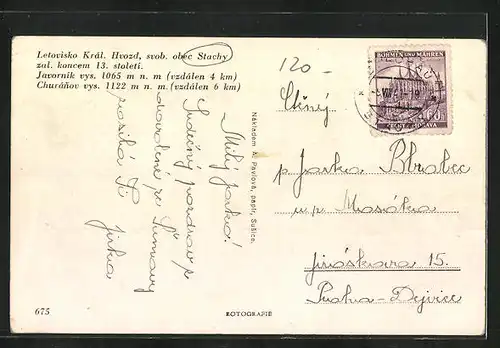 Letovisko Král. Hvozd, svob. obec Stachy
zal. koncem 13. století.
Javorník vys. 1065 m n. m (vzdálen 4 km)
Churáňov vys. 1122 m n. m. (vzdálen 6 km)
120-
BÖHMEN UND MÄHREN
60
Milý Jarko!
Srdečný pozdrav z
dovolené ze Šumavy
zasílá Ti
Jirka
Nákladem A. Pavlová, papír, Sušice.
Ctěný
p. Jarka
u p.
Jiráskova 15.
Praha-Dejvice
675
FOTOGRAFIE